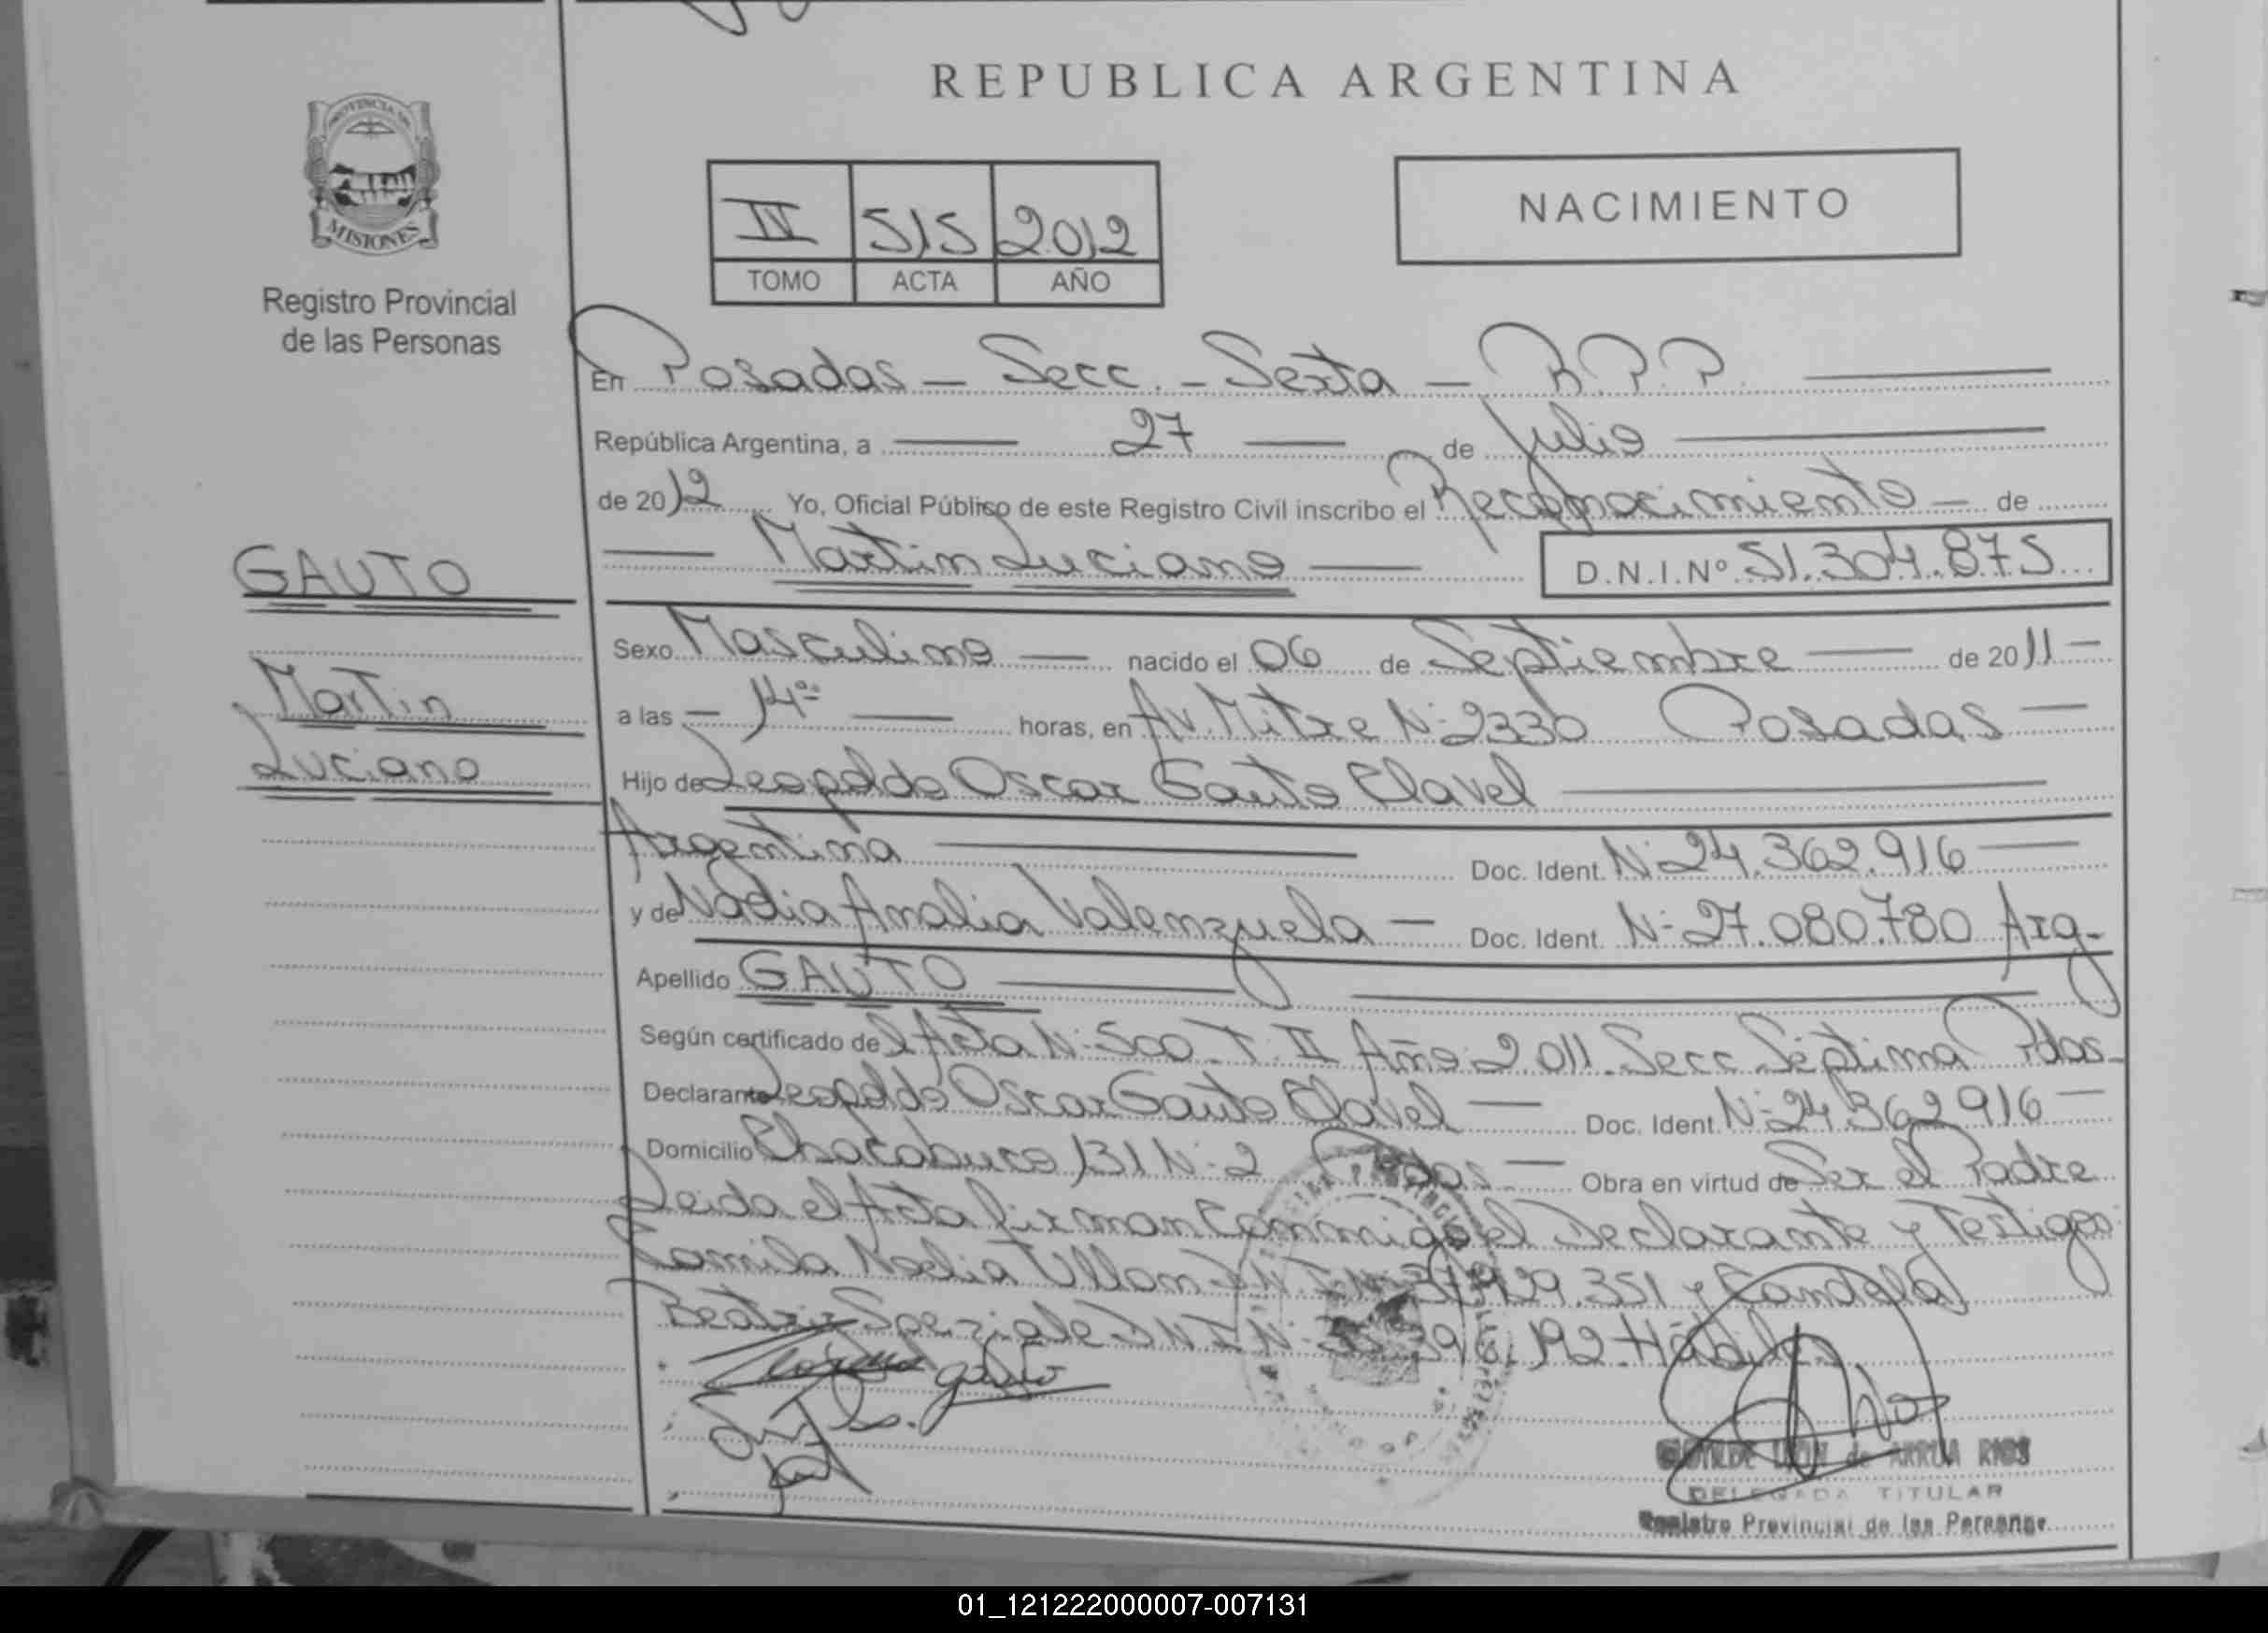 REPUBLICA ARGENTINA
PROVINCIA DE
MISIONES
Registro Provincial
de las Personas
IV 515 2012
TOMO ACTA AÑO
NACIMIENTO
En Posadas - Secc. - Sexta - R.P.P.
República Argentina, a 27 de Julio
de 2012 Yo, Oficial Público de este Registro Civil inscribo el Reconocimiento - de
Martin Luciano D.N.I.Nº 51.304.875
GAUTO
Martin
Luciano
Sexo Masculino nacido el 06 de Septiembre de 2011
a las 14 horas, en Av. Mitre Nº 2330 Posadas
Hijo de Leopoldo Oscar Gauto Clavel
Argentina Doc. Ident. Nº 24.362.916
y de Nadia Amalia Valenzuela Doc. Ident. Nº 27.080.780 Arg.
Apellido GAUTO
Según certificado de l Acta Nº 500 T. II Año 2.011. Secc Séptima Pdas
Declarante Leopoldo Oscar Gauto Clavel Doc. Ident. Nº 24.362.916
Domicilio Chacabuco 131 Nº 2 Pdas Obra en virtud de Ser el Padre
Leida el Acta firman conmigo el Declarante y Testigos
Camila Noelia Ullon 351 y Candela
Beatriz Speziale DNI Nº 192 Hábiles
de ARRUA RIOS
DELEGADA TITULAR
Registro Provincial de las Personas
01_121222000007-007131